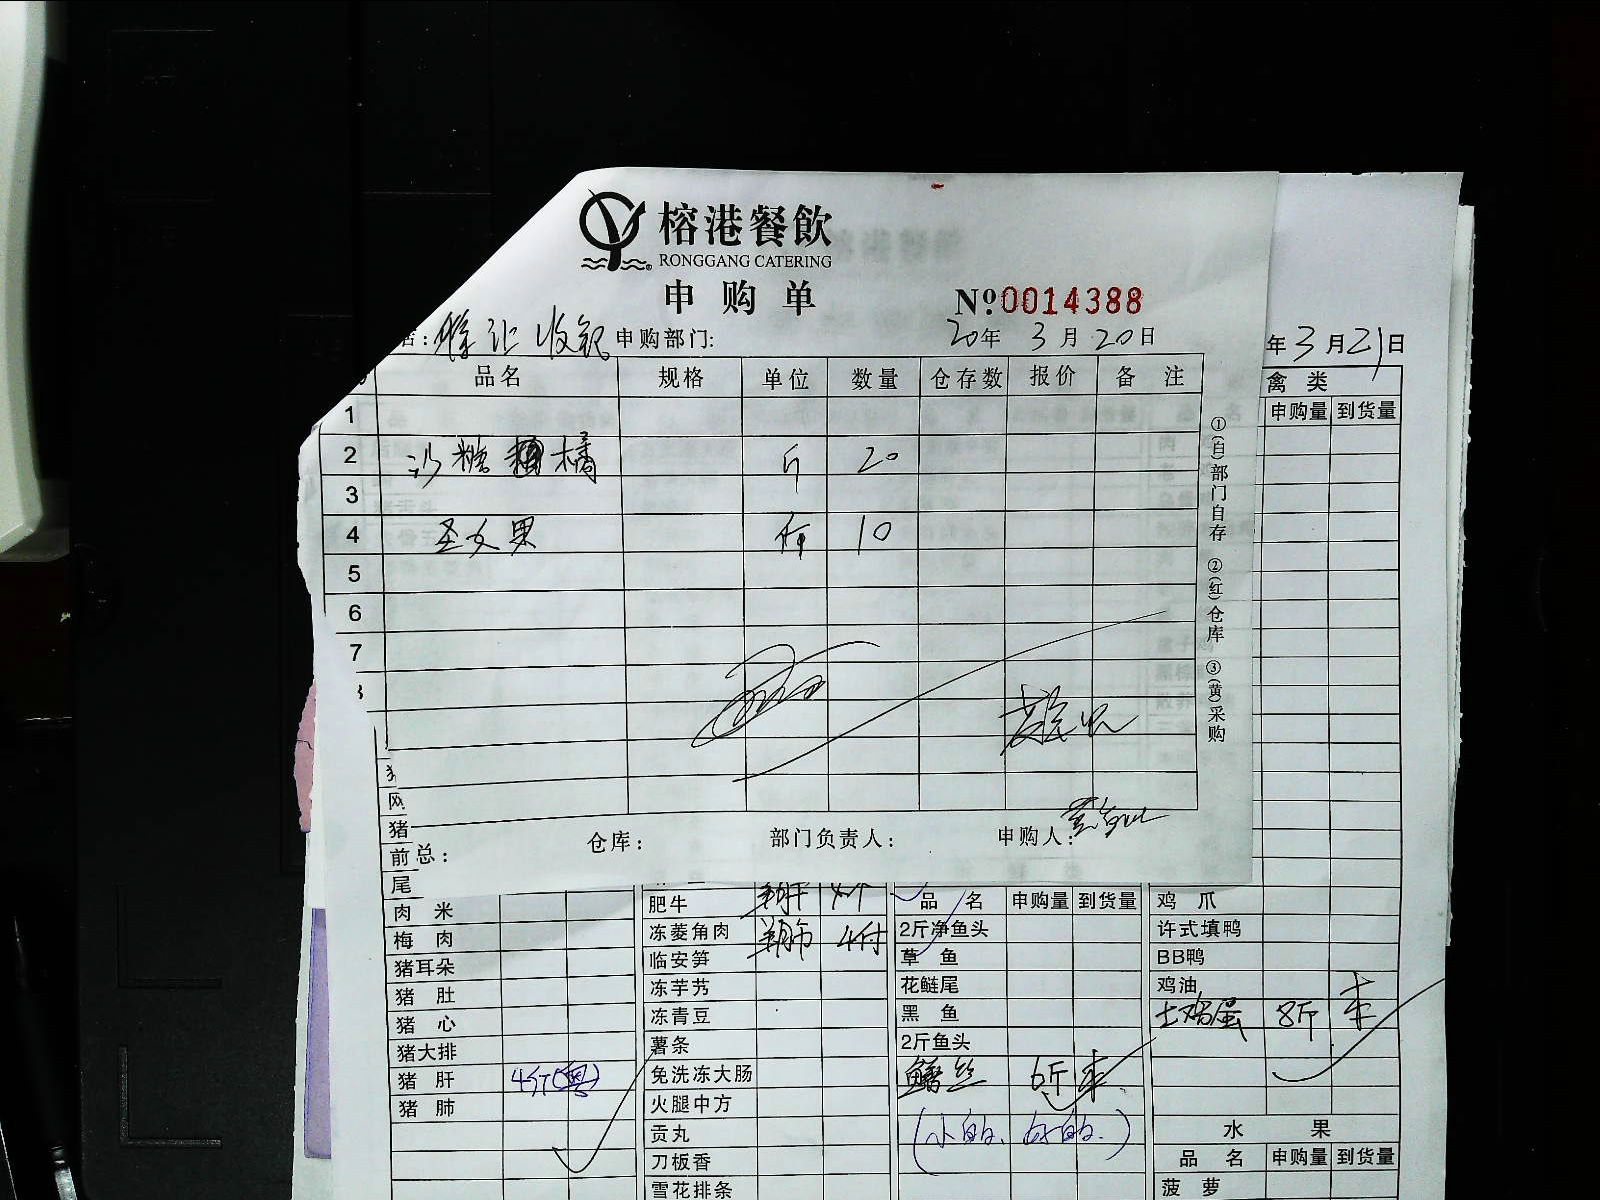 榕港餐飲
RONGGANG CATERING
申购单
No.0014388
店: 徐汇收银 申购部门: 20年 3月 20日
品名 规格 单位 数量 仓存数 报价 备注
1
2 沙糖 橘 斤 20
3
4 圣女果 斤 10
5
6
7
①(白)部门自存 ②(红)仓库 ③(黄)采购
总: 仓库: 部门负责人: 申购人:
年 3月 21日
禽类
申购量 到货量
网
猪
前
尾
肉米
梅肉
猪耳朵
猪肚
猪心
猪大排
猪肝 4斤(粤)
猪肺
肥牛 羊肝
冻菱角肉 羊肺 4付
临安笋
冻芋艿
冻青豆
薯条
免洗冻大肠
火腿中方
贡丸
刀板香
雪花排条
品名 申购量 到货量
2斤净鱼头
草鱼
花鲢尾
黑鱼
2斤鱼头
鳝丝 6斤 来
鸡爪
许式填鸭
BB鸭
鸡油
土鸡蛋 8斤 来
水果
品名 申购量 到货量
菠萝